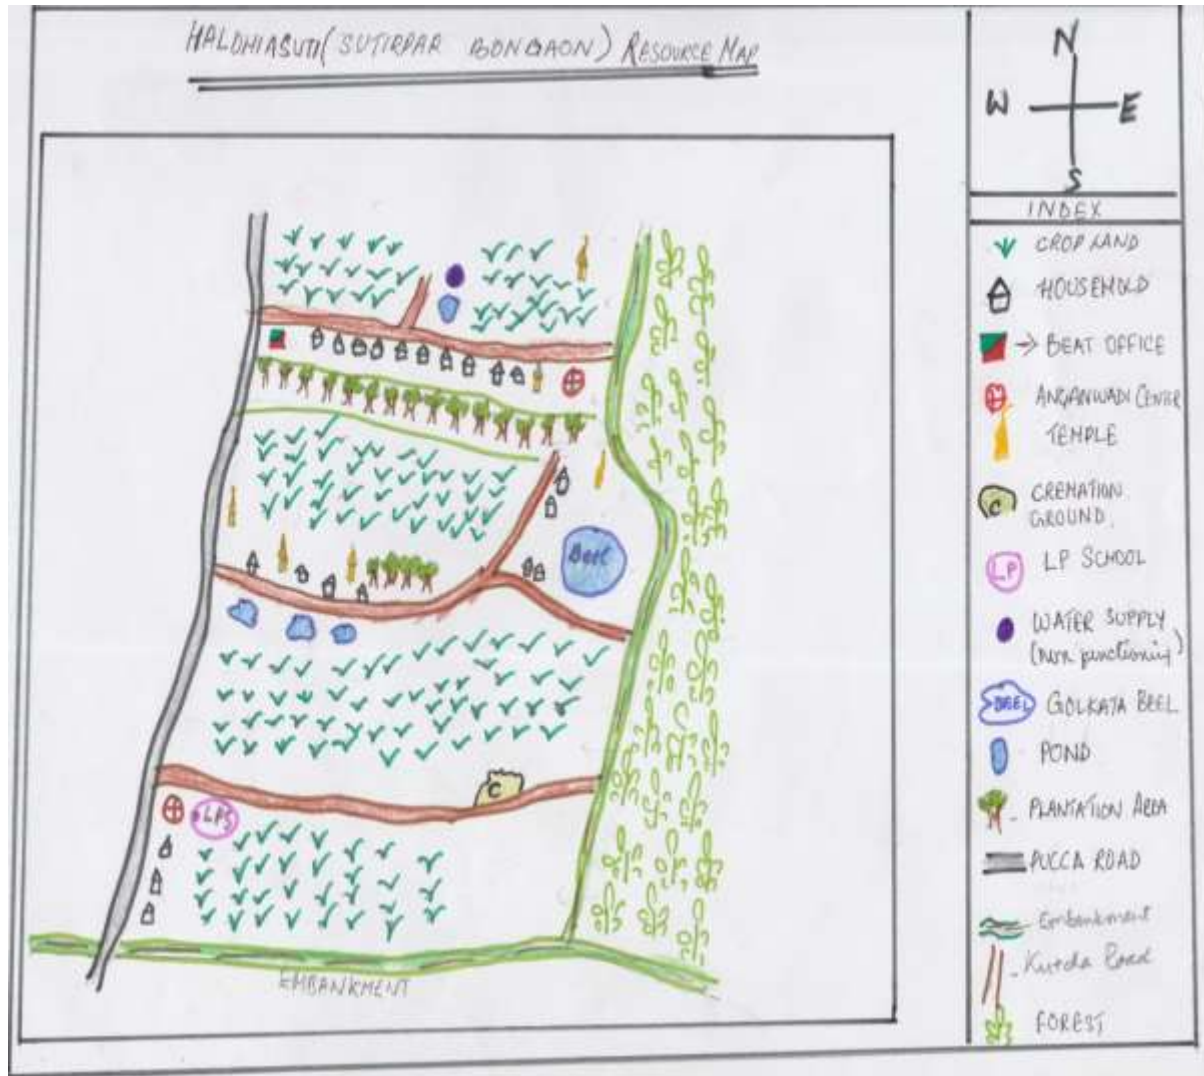 HALDHIASUTI (SUTIRPAR BONGAON) RESOURCE MAP
N
W E
S
INDEX
CROP LAND
HOUSEHOLD
→ BEAT OFFICE
ANGANWADI CENTER
TEMPLE
C
CREMATION
GROUND.
LP
LP SCHOOL
WATER SUPPLY
(non functioning)
BEEL
GOLKATA BEEL
POND
PLANTATION AREA
PUCCA ROAD
Embankment
Kutcha Road
FOREST
Beel
C
LPS
EMBANKMENT